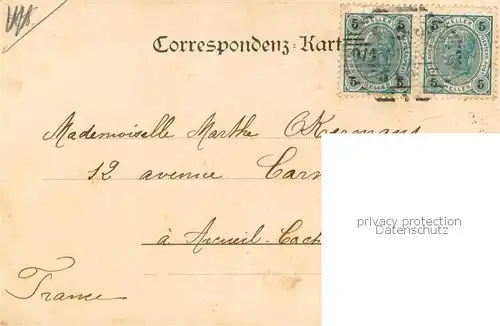 Correspondenz-Kart
5 HELLER 5
5 HELLER 5
5 5
5 5
Mademoiselle Marthe
12 avenue Carn
à Arcueil-Cach
France
privacy protection
Datenschutz